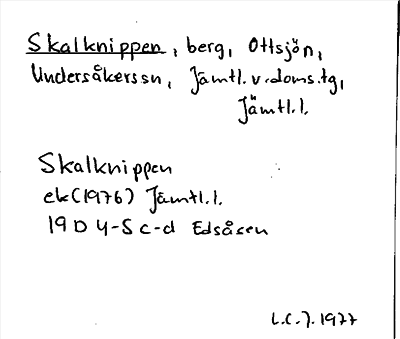 Skalknippen, berg, Ottsjön,
Undersåkerssn, Jämtl.v.doms.tg,
Jämtl.l.
Skalknippen
ek(1976) Jämtl.l.
19D 4-5 c-d Edsåsen
L.C.J. 1977